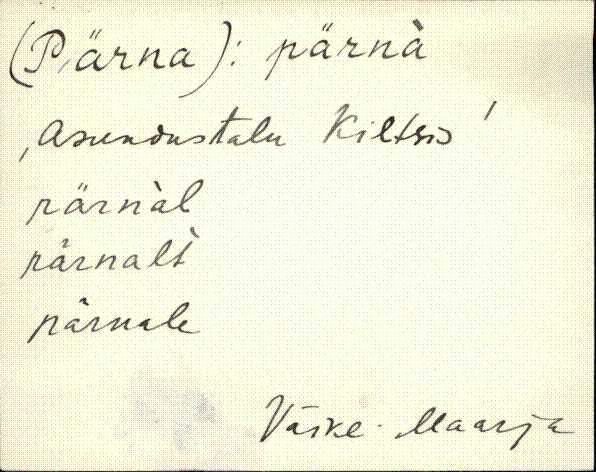 (Pärna): pärnà
‚asundustalu Kiltsis'
pärnàl
pärnalt̀
pärnale
Väike-Maarja